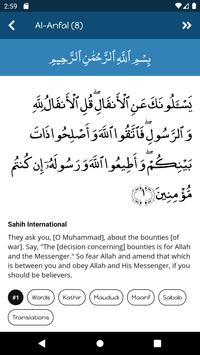 2:59
Al-Anfal (8)
بِسْمِ ٱللَّهِ ٱلرَّحْمَٰنِ ٱلرَّحِيمِ
يَسْـَٔلُونَكَ عَنِ ٱلْأَنفَالِ ۖ قُلِ ٱلْأَنفَالُ لِلَّهِ
وَٱلرَّسُولِ ۖ فَٱتَّقُوا۟ ٱللَّهَ وَأَصْلِحُوا۟ ذَاتَ
بَيْنِكُمْ ۖ وَأَطِيعُوا۟ ٱللَّهَ وَرَسُولَهُۥٓ إِن كُنتُم
مُّؤْمِنِينَ ﴿١﴾
Sahih International
They ask you, [O Muhammad], about the bounties [of
war]. Say, "The [decision concerning] bounties is for Allah
and the Messenger." So fear Allah and amend that which
is between you and obey Allah and His Messenger, if you
should be believers.
#1 Words Kathir Maududi Maarif Sabab
Translations